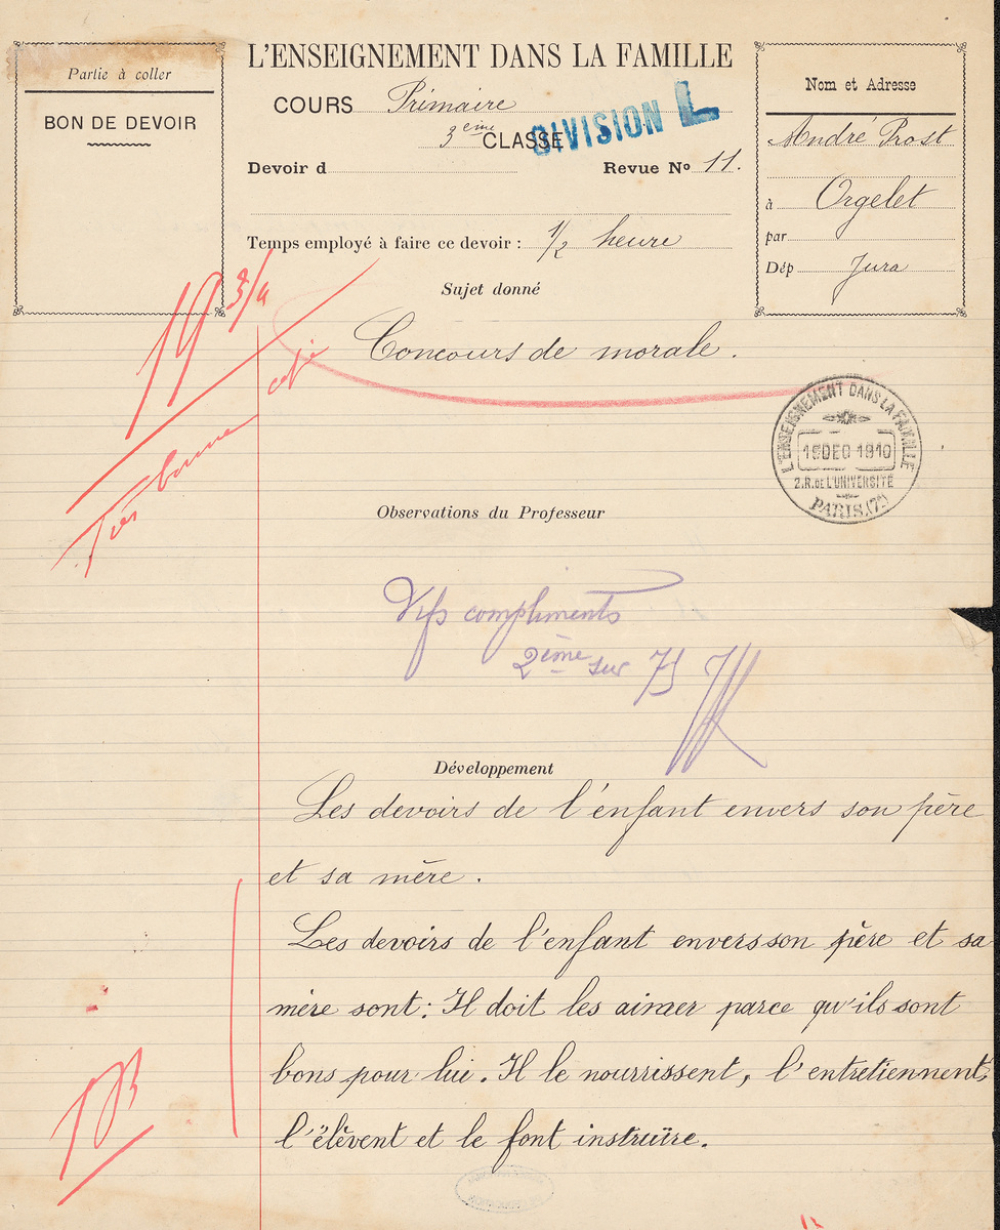 Partie à coller
BON DE DEVOIR
L'ENSEIGNEMENT DANS LA FAMILLE
COURS Primaire
3ème CLASSE
DIVISION L
Devoir d
Revue No 11.
Temps employé à faire ce devoir : 1/2 heure
Nom et Adresse
André Prost
à Orgelet
par
Dép Jura
Sujet donné
Concours de morale.
19 3/4
Très bonne copie
L'ENSEIGNEMENT DANS LA FAMILLE
15 DEC 1910
2.R. DE L'UNIVERSITÉ
PARIS (7e)
Observations du Professeur
Vifs compliments
2ème sur 75
Développement
Les devoirs de l'enfant envers son père
et sa mère.
Les devoirs de l'enfant envers son père et sa
mère sont: Il doit les aimer parce qu'ils sont
bons pour lui. Il le nourrissent, l'entretiennent,
l'élèvent et le font instruire.
TB